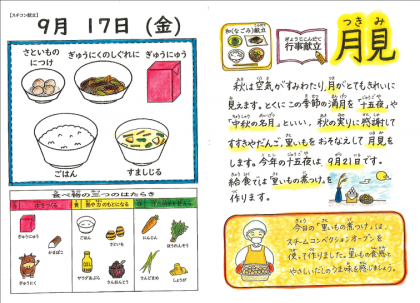 【スチコン献立】
9月 17日（金）
さといもの
につけ
ぎゅうにくのしぐれに
ぎゅうにゅう
ごはん
すましじる
食べ物の三つのはたらき
ぎゅうにゅう
かまぼこ
ごはん
さといも
にんじん
ほうれんそう
ぎゅうにく
サラダあぶら
さんおんとう
しょうが
和(なごみ)献立
ぎょうじこんだて
行事献立
つきみ
月見
秋は空気がすみわたり、月がとてもきれいに
見えます。とくにこの季節の満月を「十五夜」や
「中秋の名月」といい、秋の実りに感謝して
すすきやだんご、里いもをおそなえして月見を
します。今年の十五夜は、9月21日です。
給食では「里いもの煮つけ」を
作ります。
今日の「里いもの煮つけ」は、
スチームコンベクションオーブンを
使って作りました。里いもの食感と
やさしいだしのうま味を感じましょう。